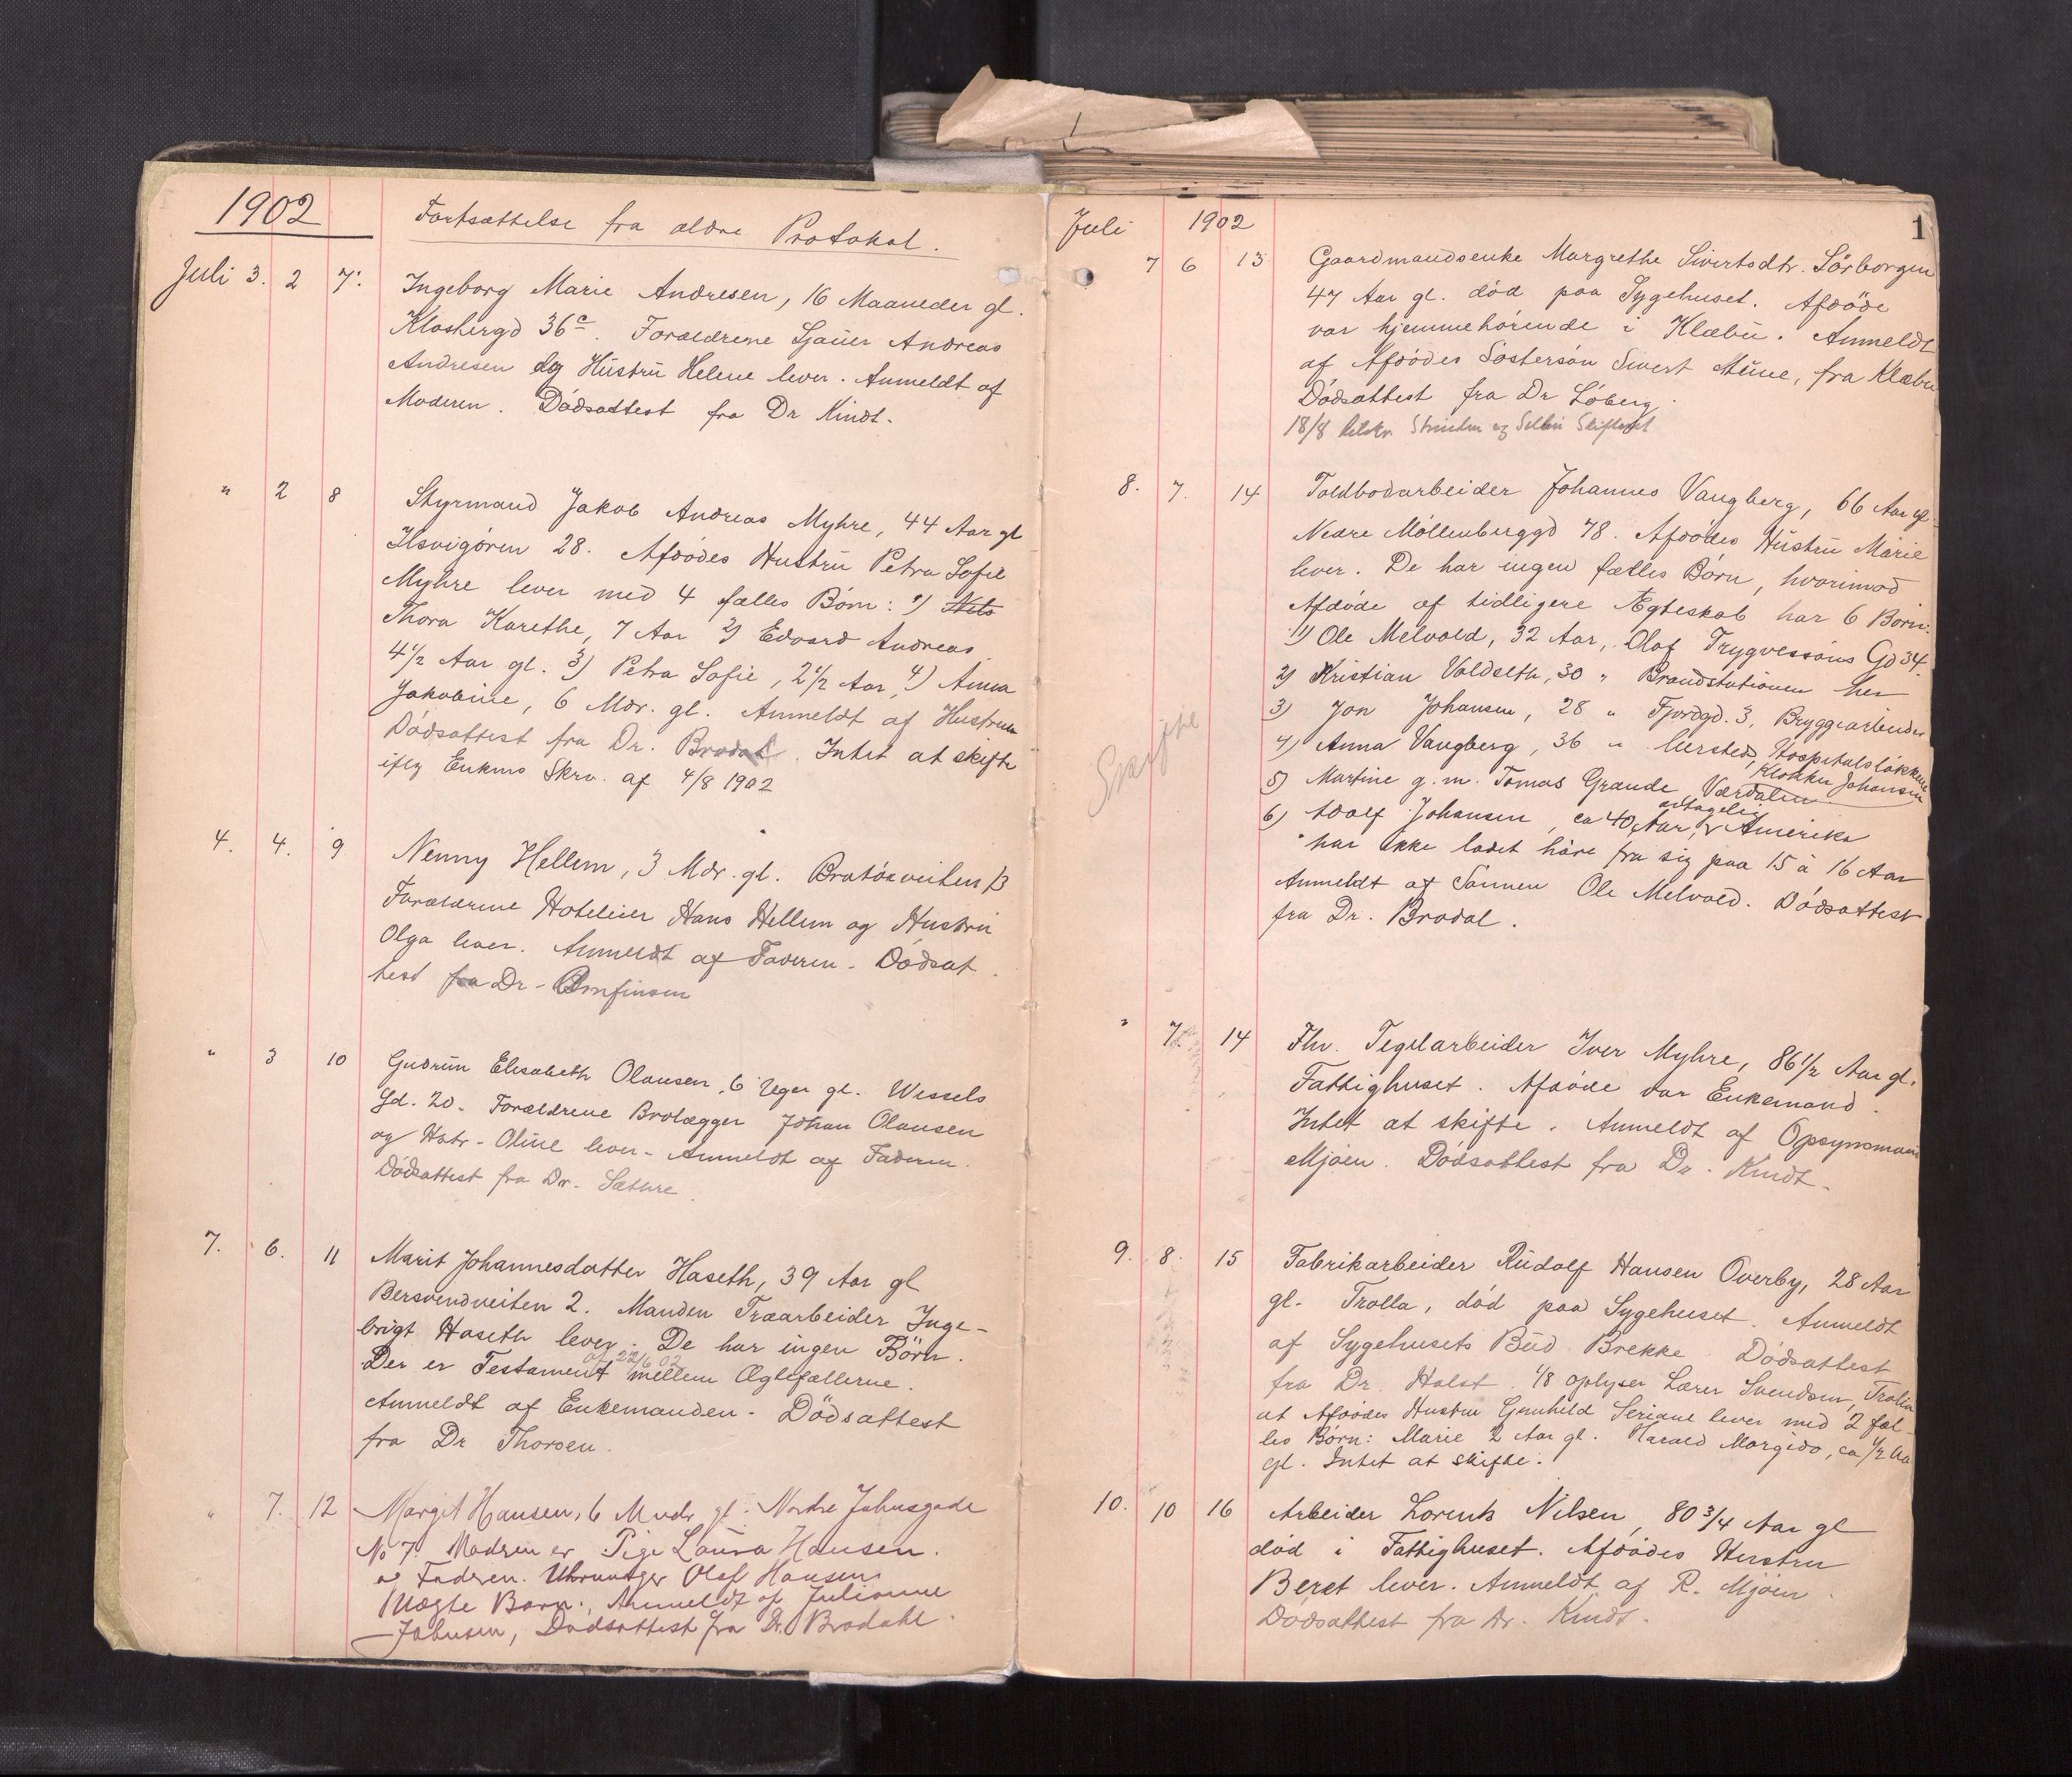 1902
Fortsættelse fra ældre Protokol.
Juli 3. 2 7. Ingeborg Marie Andresen, 16 Maaneder gl.
Klostergd 36c. Forældrene Sjauer Andreas
Andresen og Hustru Helene lever. Anmeldt af
Moderen. Dödsattest fra Dr Kindt.
" 2 8 Styrmand Jakob Andreas Myhre, 44 Aar gl
Ilsvigören 28. Afdödes Hustru Petra Sofie
Myhre lever med 4 fælles Börn: 1) Nils
Thora Karethe, 7 Aar 2) Edvard Andreas
4½ Aar gl. 3) Petra Sofie, 2½ Aar, 4) Anna
Jakobine, 6 Mdr. gl. Anmeldt af Hustruen
Dödsattest fra Dr. Brodal. Intet at skifte
iflg Enkens Skrv. af 4/8 1902
4. 4. 9 Nenny Hellem, 3 Mdr. gl. Bratörveiten 13
Forældrene Hoteleier Hans Hellem og Hustru
Olga lever. Anmeldt af Faderen. Dödsat
test fra Dr. Arnfinsen
" 3 10 Gudrun Elisabeth Olausen, 6 Uger gl. Wessels
Gd. 20. Forældrene Brolægger Johan Olausen
og Hstr. Oline lever. Anmeldt af Faderen.
Dödsattest fra Dr. Sæthre.
7. 6. 11 Marit Johannesdatter Haseth, 39 Aar gl
Bersvendveiten 2. Manden Træarbeider Inge-
brigt Haseth lever. De har ingen Börn.
af 22/6 02
Der er Testament mellem Ægtefællerne.
Anmeldt af Enkemanden. Dödsattest
fra Dr Thorsen.
" 7. 12 Margit Hansen, 6 Mndr gl. Nordre Johnsgade
No 7. Modren er Pige Laura Hansen.
og Fadren Olaf Hansen.
Uægte Barn. Anmeldt af Julianne
Johnsen, Dödsattest fra Dr. Brodahl.
Juli 1902 1
7 6 13 Gaardmandsenke Margrethe Sivertsdtr. Sörborgen
47 Aar gl. död paa Sygehuset. Afdöde
var hjemmehörende i Klæbu. Anmeldt
af Afdödes Söstersön Sivert Mune, fra Klæbu
Dödsattest fra Dr Löberg.
18/8 tilskr. Strinden og Selbu Skifteret
8. 7. 14 Toldbodarbeider Johannes Vangberg, 66 Aar gl.
Nedre Möllenberggd 78. Afdödes Hustru Marie
lever. De har ingen fælles Börn, hvorimod
Afdöde af tidligere Ægteskab har 6 Börn:
1) Ole Melvold, 32 Aar, Olaf Trygvessöns Gd 34.
2) Kristian Voldseth, 30 " Brandstationen her
3) Jon Johansen, 28 " Fjordgd. 3, Bryggearbeider
Skifte
4) Anna Vangberg, 36 " Hospitalslökken
Klokker Johansen
5) Martine g. m. Tomas Grande Værdalen
antagelig
6) Adolf Johansen, ca 40 Aar, Amerika
har ikke ladet höre fra sig paa 15 à 16 Aar
Anmeldt af Sönnen Ole Melvold. Dödsattest
fra Dr. Brodal.
" 7. 14 Fhv. Teglarbeider Iver Myhre, 86½ Aar gl.
Fattighuset. Afdöde var Enkemand.
Intet at skifte. Anmeldt af Opsynsmand
Mjöen. Dödsattest fra Dr. Kindt.
9. 8. 15 Fabrikarbeider Rudolf Hansen Överby, 28 Aar
gl. Trolla, död paa Sygehuset. Anmeldt
af Sygehusets Bud Brekke. Dödsattest
fra Dr. Holst. 1/8 oplyser Lærer Svendsen, Trolla
at Afdödes Hustru Gunhild Seriane lever med 2 fæl
les Börn: Marie 2 Aar gl. Harald Margido, ca ½ Aar
gl. Intet at skifte.
10. 10 16 Arbeider Lorents Nilsen, 80¾ Aar gl
död i Fattighuset. Afdödes Hustru
Beret lever. Anmeldt af R. Mjöen.
Dödsattest fra Dr. Kindt.